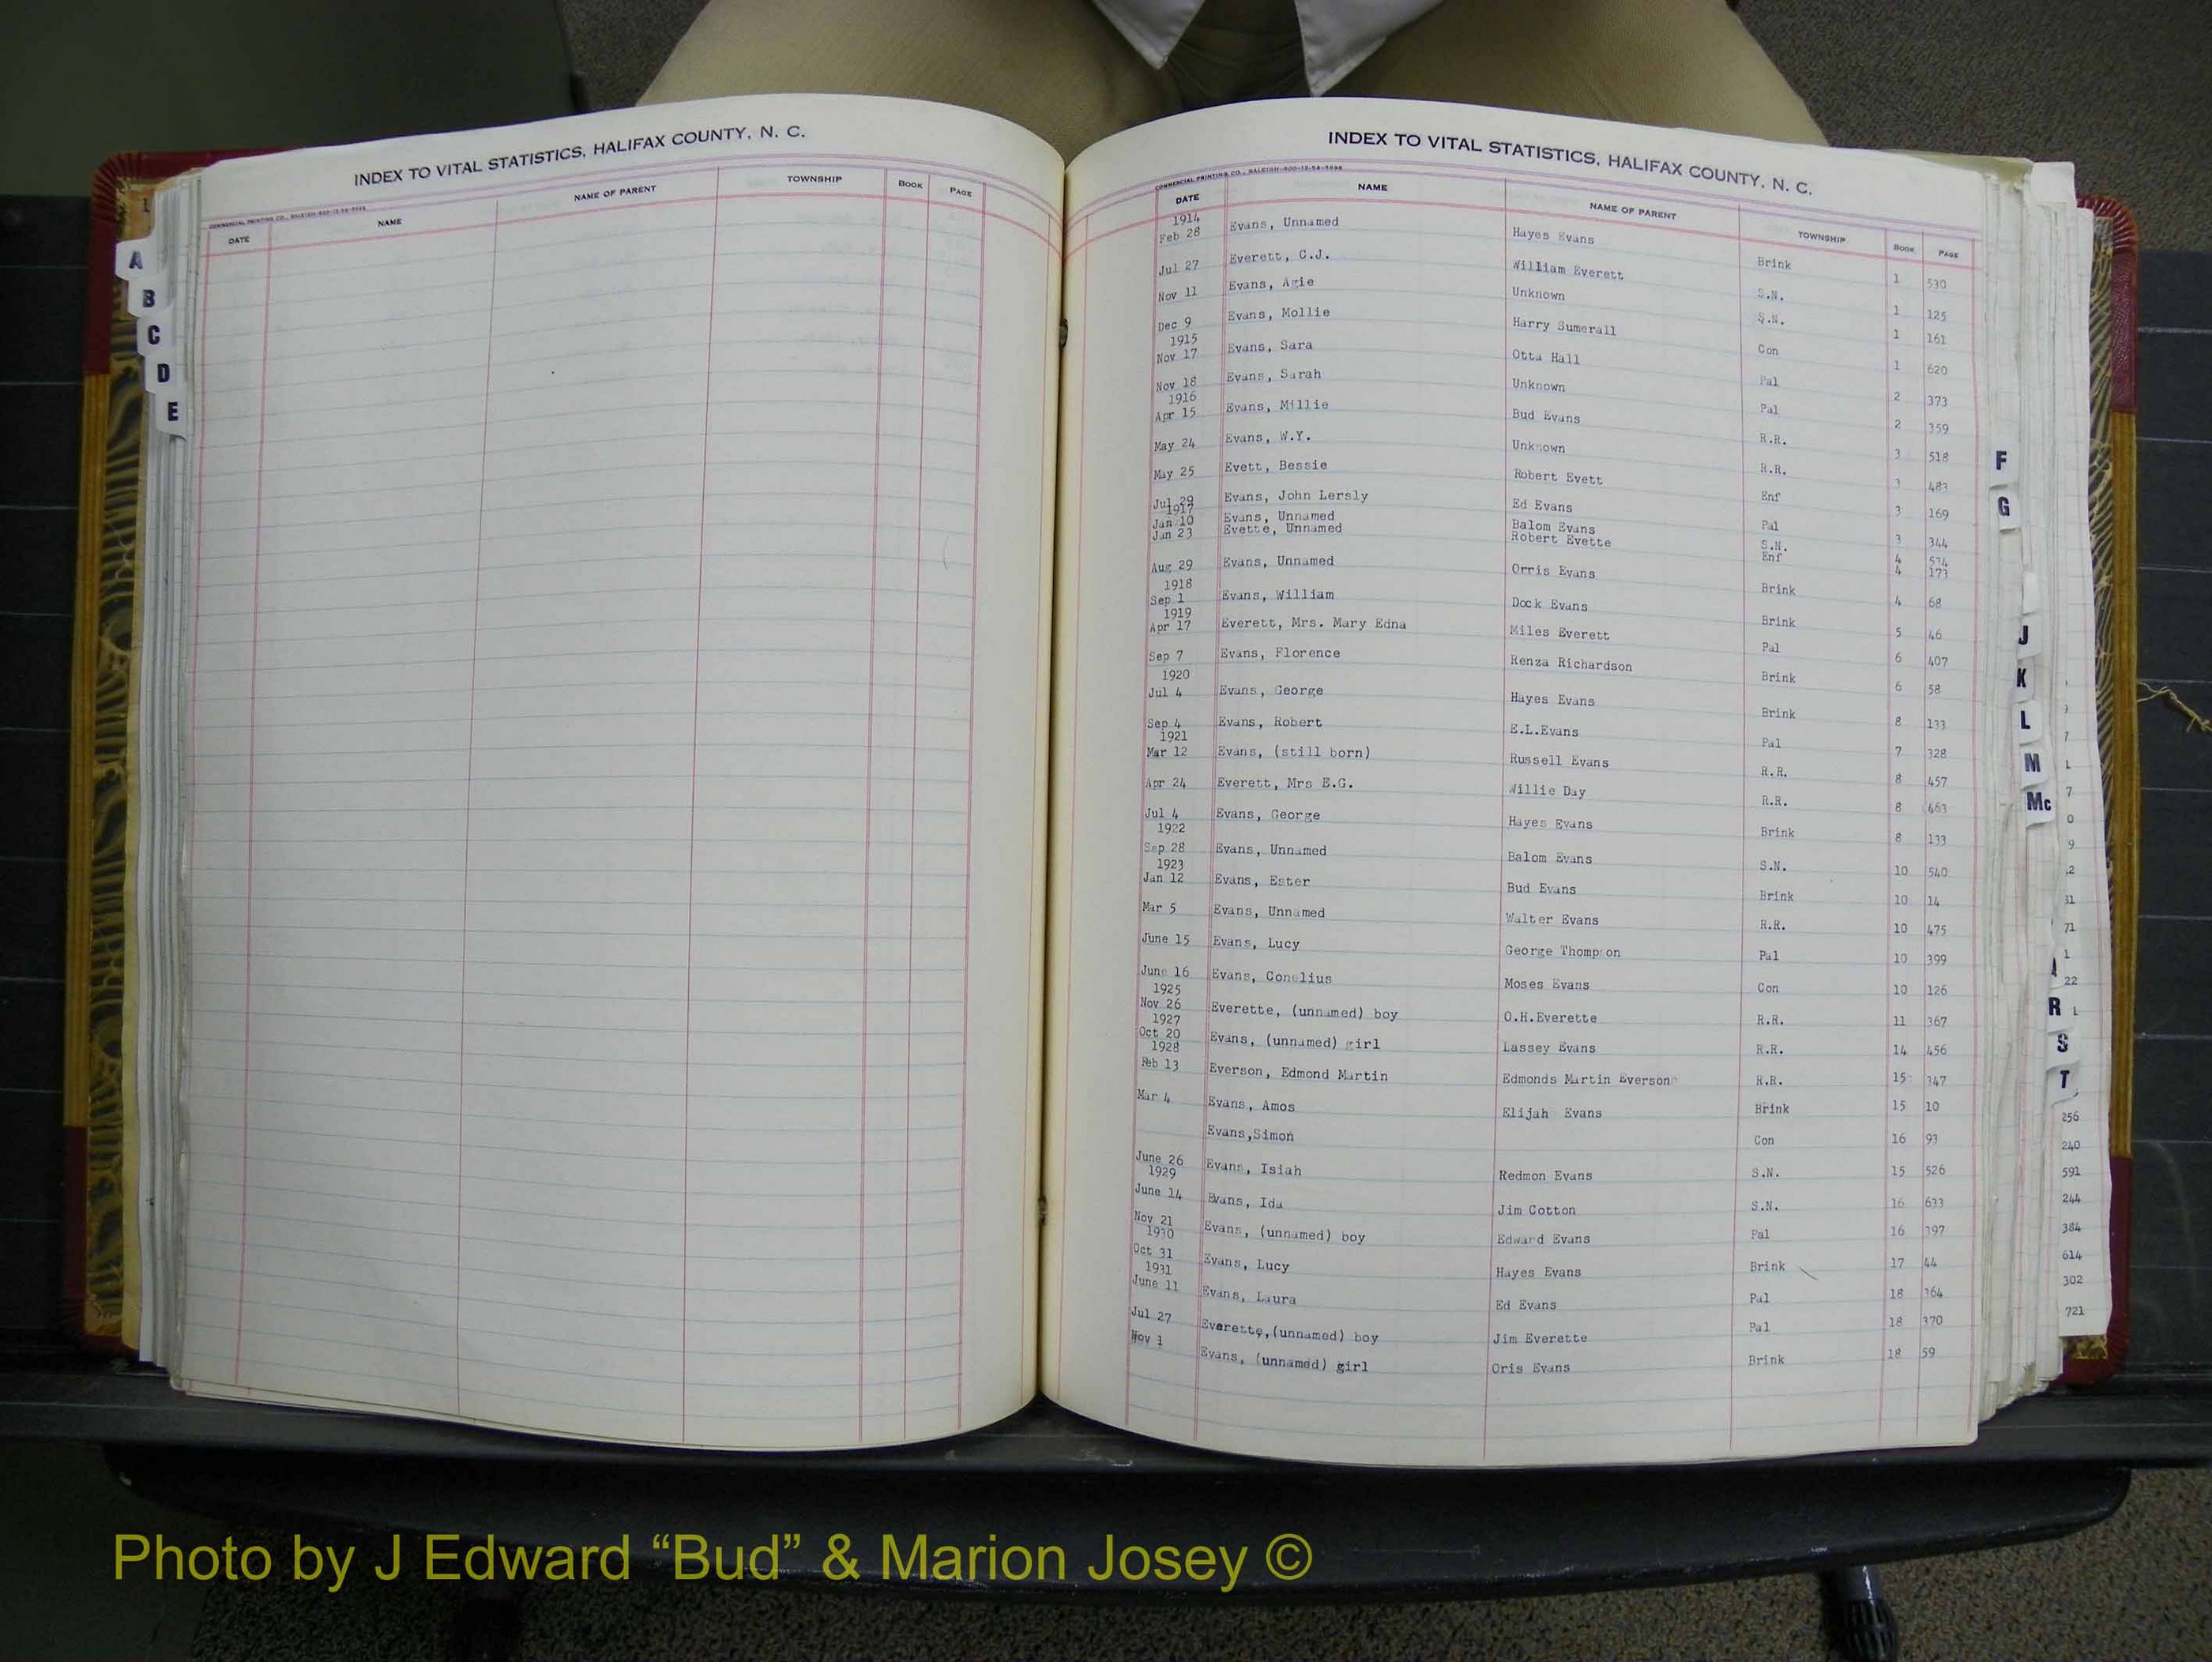 INDEX TO VITAL STATISTICS, HALIFAX COUNTY, N. C.
COMMERCIAL PRINTING CO., RALEIGH
DATE NAME NAME OF PARENT TOWNSHIP BOOK PAGE
A
B
C
D
E
INDEX TO VITAL STATISTICS, HALIFAX COUNTY, N. C.
COMMERCIAL PRINTING CO., RALEIGH
DATE NAME NAME OF PARENT TOWNSHIP BOOK PAGE
1914
Feb 28 Evans, Unnamed Hayes Evans Brink 1 530
Jul 27 Everett, C.J. William Everett S.N. 1 125
Nov 11 Evans, Agie Unknown S.N. 1 161
Dec 9 Evans, Mollie Harry Sumerall Con 1 620
1915
Nov 17 Evans, Sara Otta Hall Pal 2 373
Nov 18 Evans, Sarah Unknown Pal 2 359
1916
Apr 15 Evans, Millie Bud Evans R.R. 3 518
May 24 Evans, W.Y. Unknown R.R. 3 483
May 25 Evett, Bessie Robert Evett Enf 3 169
Jul 29 Evans, John Lersly Ed Evans Pal 3 344
1917
Jan 10 Evans, Unnamed Balom Evans S.N. 4 574
Jan 23 Evette, Unnamed Robert Evette Enf 4 173
Aug 29 Evans, Unnamed Orris Evans Brink 4 68
1918
Sep 1 Evans, William Dock Evans Brink 5 46
1919
Apr 17 Everett, Mrs. Mary Edna Miles Everett Pal 6 407
Sep 7 Evans, Florence Renza Richardson Brink 6 58
1920
Jul 4 Evans, George Hayes Evans Brink 8 133
Sep 4 Evans, Robert E.L.Evans Pal 7 328
1921
Mar 12 Evans, (still born) Russell Evans R.R. 8 457
Apr 24 Everett, Mrs E.G. Willie Day R.R. 8 463
Jul 4 Evans, George Hayes Evans Brink 8 133
1922
Sep 28 Evans, Unnamed Balom Evans S.N. 10 540
1923
Jan 12 Evans, Ester Bud Evans Brink 10 14
Mar 5 Evans, Unnamed Walter Evans R.R. 10 475
June 15 Evans, Lucy George Thompson Pal 10 399
June 16 Evans, Conelius Moses Evans Con 10 126
1925
Nov 26 Everette, (unnamed) boy O.H.Everette R.R. 11 367
1927
Oct 20 Evans, (unnamed) girl Lassey Evans R.R. 14 456
1928
Feb 13 Everson, Edmond Martin Edmonds Martin Everson R.R. 15 347
Mar 4 Evans, Amos Elijah Evans Brink 15 10
Evans,Simon Con 16 93
June 26 Evans, Isiah Redmon Evans S.N. 15 526
1929
June 14 Evans, Ida Jim Cotton S.N. 16 633
Nov 21 Evans, (unnamed) boy Edward Evans Pal 16 397
1930
Oct 31 Evans, Lucy Hayes Evans Brink 17 44
1931
June 11 Evans, Laura Ed Evans Pal 18 364
Jul 27 Everette,(unnamed) boy Jim Everette Pal 18 370
Nov 1 Evans, (unnamed) girl Oris Evans Brink 18 59
F
G
J
K
L
M
Mc
R
S
T
71
22
256
240
591
244
384
614
302
721
Photo by J Edward “Bud” & Marion Josey ©